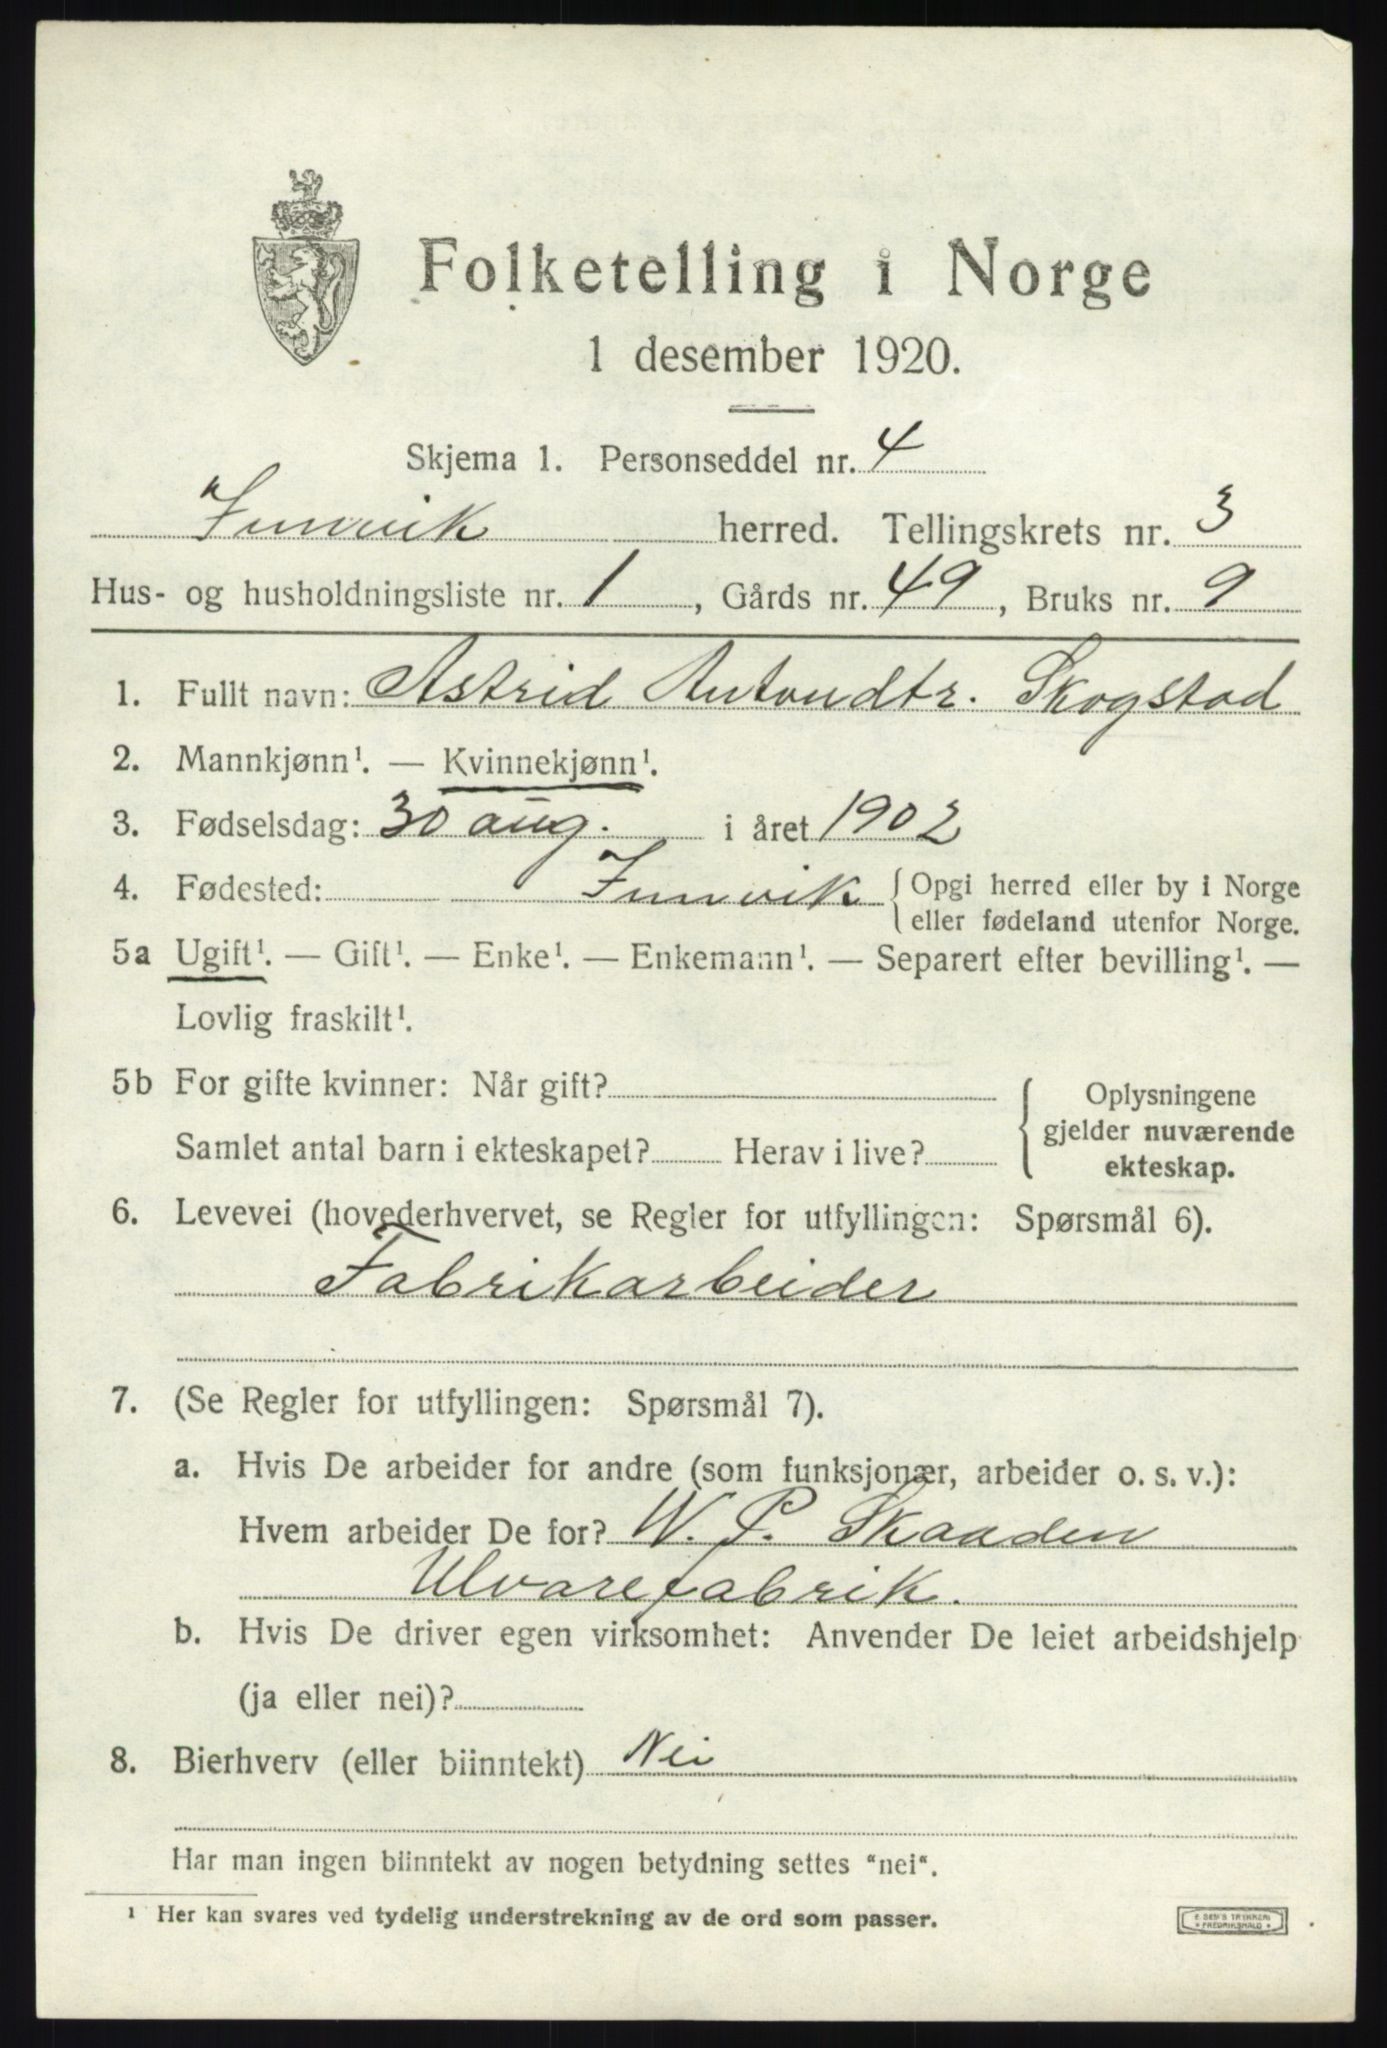 Folketelling i Norge
1 desember 1920.
Skjema 1. Personseddel nr. 4
Innvik herred. Tellingskrets nr. 3
Hus- og husholdningsliste nr. 1, Gårds nr. 49, Bruks nr. 9
1. Fullt navn: Astrid Antondtr. Skogstad
2. Mannkjønn¹. — Kvinnekjønn¹.
3. Fødselsdag: 30 aug. i året 1902
4. Fødested: Innvik { Opgi herred eller by i Norge
eller fødeland utenfor Norge.
5a Ugift¹. — Gift¹. — Enke¹. — Enkemann¹. — Separert efter bevilling¹. —
Lovlig fraskilt¹.
5b For gifte kvinner: Når gift?
Samlet antal barn i ekteskapet? Herav i live?
{ Oplysningene
gjelder nuværende
ekteskap.
6. Levevei (hovederhvervet, se Regler for utfyllingen: Spørsmål 6).
Fabrikarbeider
7. (Se Regler for utfyllingen: Spørsmål 7).
a. Hvis De arbeider for andre (som funksjonær, arbeider o. s. v.):
Hvem arbeider De for? W. P. Skaaden
Ulvarefabrik.
b. Hvis De driver egen virksomhet: Anvender De leiet arbeidshjelp
(ja eller nei)?
8. Bierhverv (eller biinntekt) Nei
Har man ingen biinntekt av nogen betydning settes "nei".
¹ Her kan svares ved tydelig understrekning av de ord som passer.
E. SEM'S TRYKKERI
FREDRIKSHALD